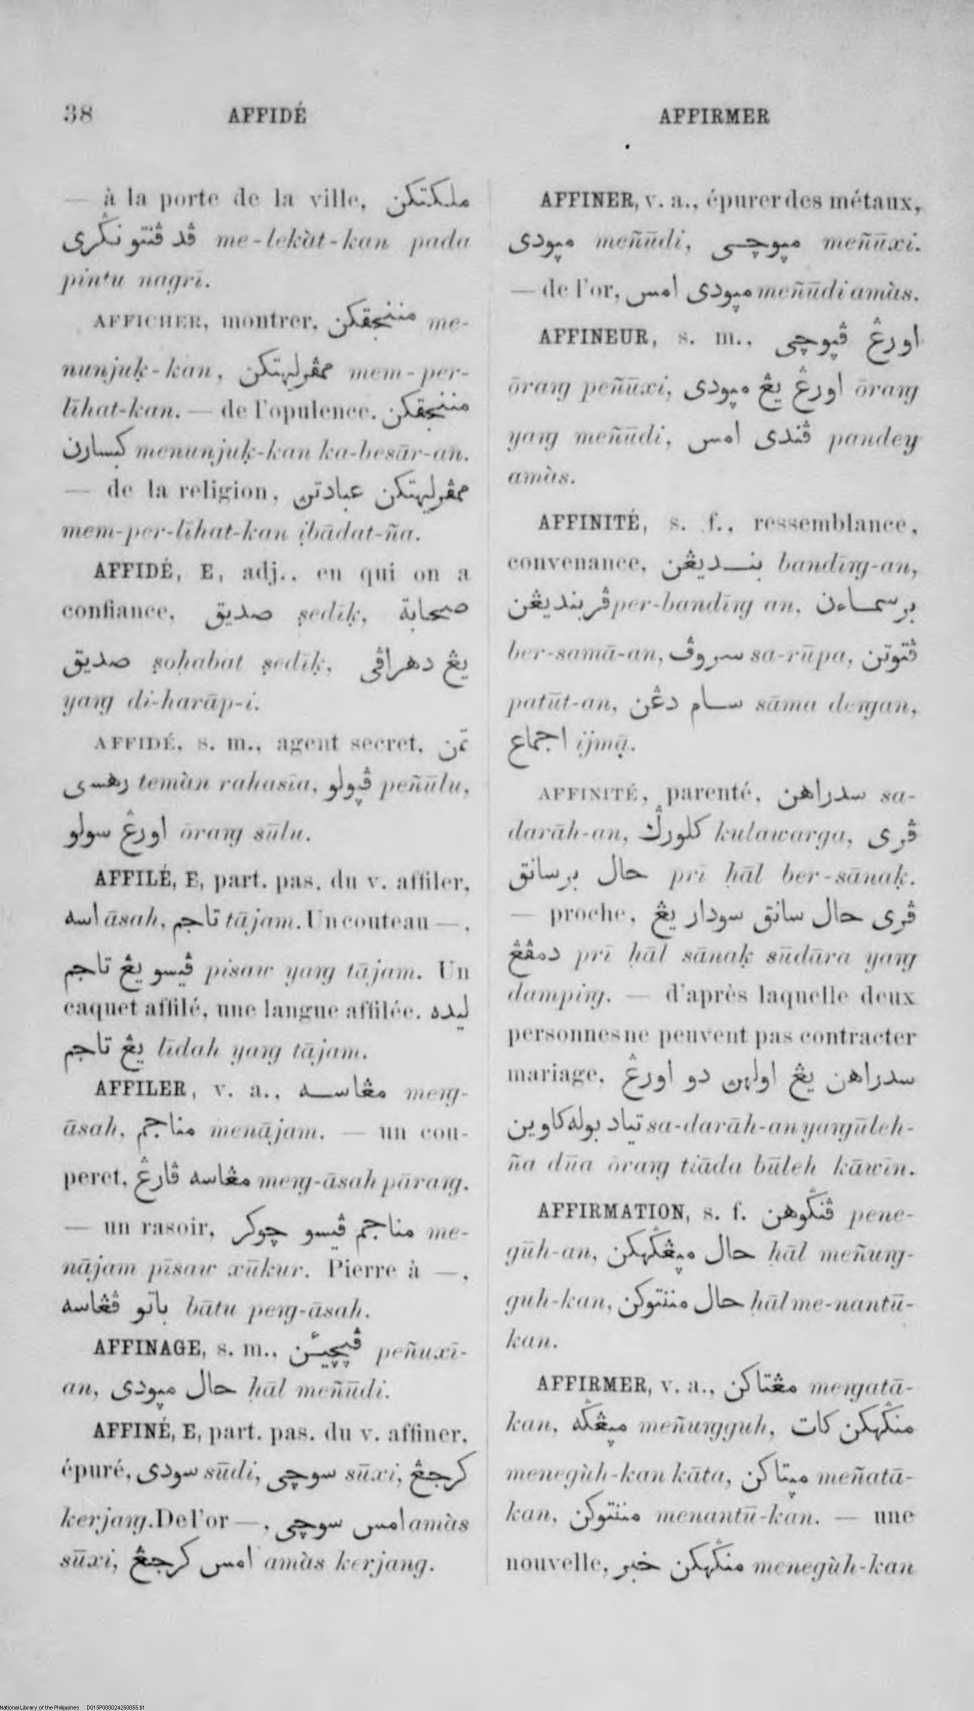 38 AFFIDÉ AFFIRMER
— à la porte de la ville, ملكتكن
ڤد ڤنتو نݢري me-lekàt-kan pada
pintu nagrī.
AFFICHER, montrer, مننجقكن me-
nunjuḳ-kan, ممڤرليهتكن mem-per-
līhat-kan. — de l'opulence, مننجقكن
كبسارن menunjuḳ-kan ka-besār-an.
— de la religion, ممڤرليهتكن عبادتڽ
mem-per-līhat-kan ịbādat-ña.
AFFIDÉ, E, adj., en qui on a
confiance, صديق ṣedīḳ, صحابة
صديق ṣoḥabat ṣedīḳ, يڠ دهراڤي
yaṉg di-harāp-i.
AFFIDÉ, s. m., agent secret, تمن
رهسي temàn rahasīa, ڤڽولو peñūlu,
اورڠ سولو ōraṉg sūlu.
AFFILÉ, E, part. pas. du v. affiler,
اسه āsah, تاجم tājam. Un couteau —,
ڤيسو يڠ تاجم pīsaw yaṉg tājam. Un
caquet affilé, une langue affilée, ليده
يڠ تاجم līdah yaṉg tājam.
AFFILER, v. a., مڠاسه meṉg-
āsah, مناجم menājam. — un cou-
peret, مڠاسه ڤارڠ meṉg-āsah pāraṉg.
— un rasoir, مناجم ڤيسو چوكر me-
nājam pīsaw xūkur. Pierre à —,
باتو ڤڠاسه bātu peṉg-āsah.
AFFINAGE, s. m., ڤڽچيئن peñuxī-
an, حال مڽودي ḥāl meñūdi.
AFFINÉ, E, part. pas. du v. affiner,
épuré, سودي sūdi, سوچي sūxi, كرجڠ
kerjaṉg. De l'or —, امس سوچي amàs
sūxi, امس كرجڠ amàs kerjang.
AFFINER, v. a., épurer des métaux,
مڽودي meñūdi, مڽوچي meñūxi.
— de l'or, مڽودي امس meñūdi amàs.
AFFINEUR, s. m., اورڠ ڤڽوچي
ōraṉg peñūxi, اورڠ يڠ مڽودي ōraṉg
yaṉg meñūdi, ڤندي امس pandey
amàs.
AFFINITÉ, s. f., ressemblance,
convenance, بنديڠن bandīṉg-an,
ڤربنديڠن per-bandīṉg an, برسماءن
ber-samā-an, سروڤ sa-rūpa, ڤتوتن
patūt-an, سام دڠن sāma deṉgan,
اجماع ijmạ̄.
AFFINITÉ, parenté, سدراهن sa-
darāh-an, كلورݢ kulawarga, ڤري
حال برسانق prī ḥāl ber-sānaḳ.
— proche, ڤري حال سانق سودار يڠ
دمڤڠ prī ḥāl sānaḳ sūdāra yaṉg
dampiṉg. — d'après laquelle deux
personnes ne peuvent pas contracter
mariage, سدراهن يڠ اولهڽ دو اورڠ
تياد بوله كاوين sa-darāh-an yaṉg ūleh-
ña dūa ōraṉg tiāda būleh kāwīn.
AFFIRMATION, s. f. ڤنݢوهن pene-
gūh-an, حال مڽڠݢهكن ḥāl meñuṉg-
guh-kan, حال مننتوكن ḥāl me-nantū-
kan.
AFFIRMER, v. a., مڠتاكن meṉgatā-
kan, مڽڠݢه meñuṉgguh, منݢهكن كات
menegùh-kan kāta, مڽتاكن meñatā-
kan, مننتوكن menantū-kan. — une
nouvelle, منݢهكن خبر menegùh-kan
National Library of the Philippines